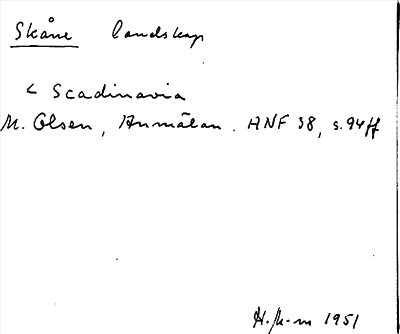 Skåne landskap
< Scadinavia
M. Olsen, Anmälan. ANF 38, s. 94 ff
H. 1951